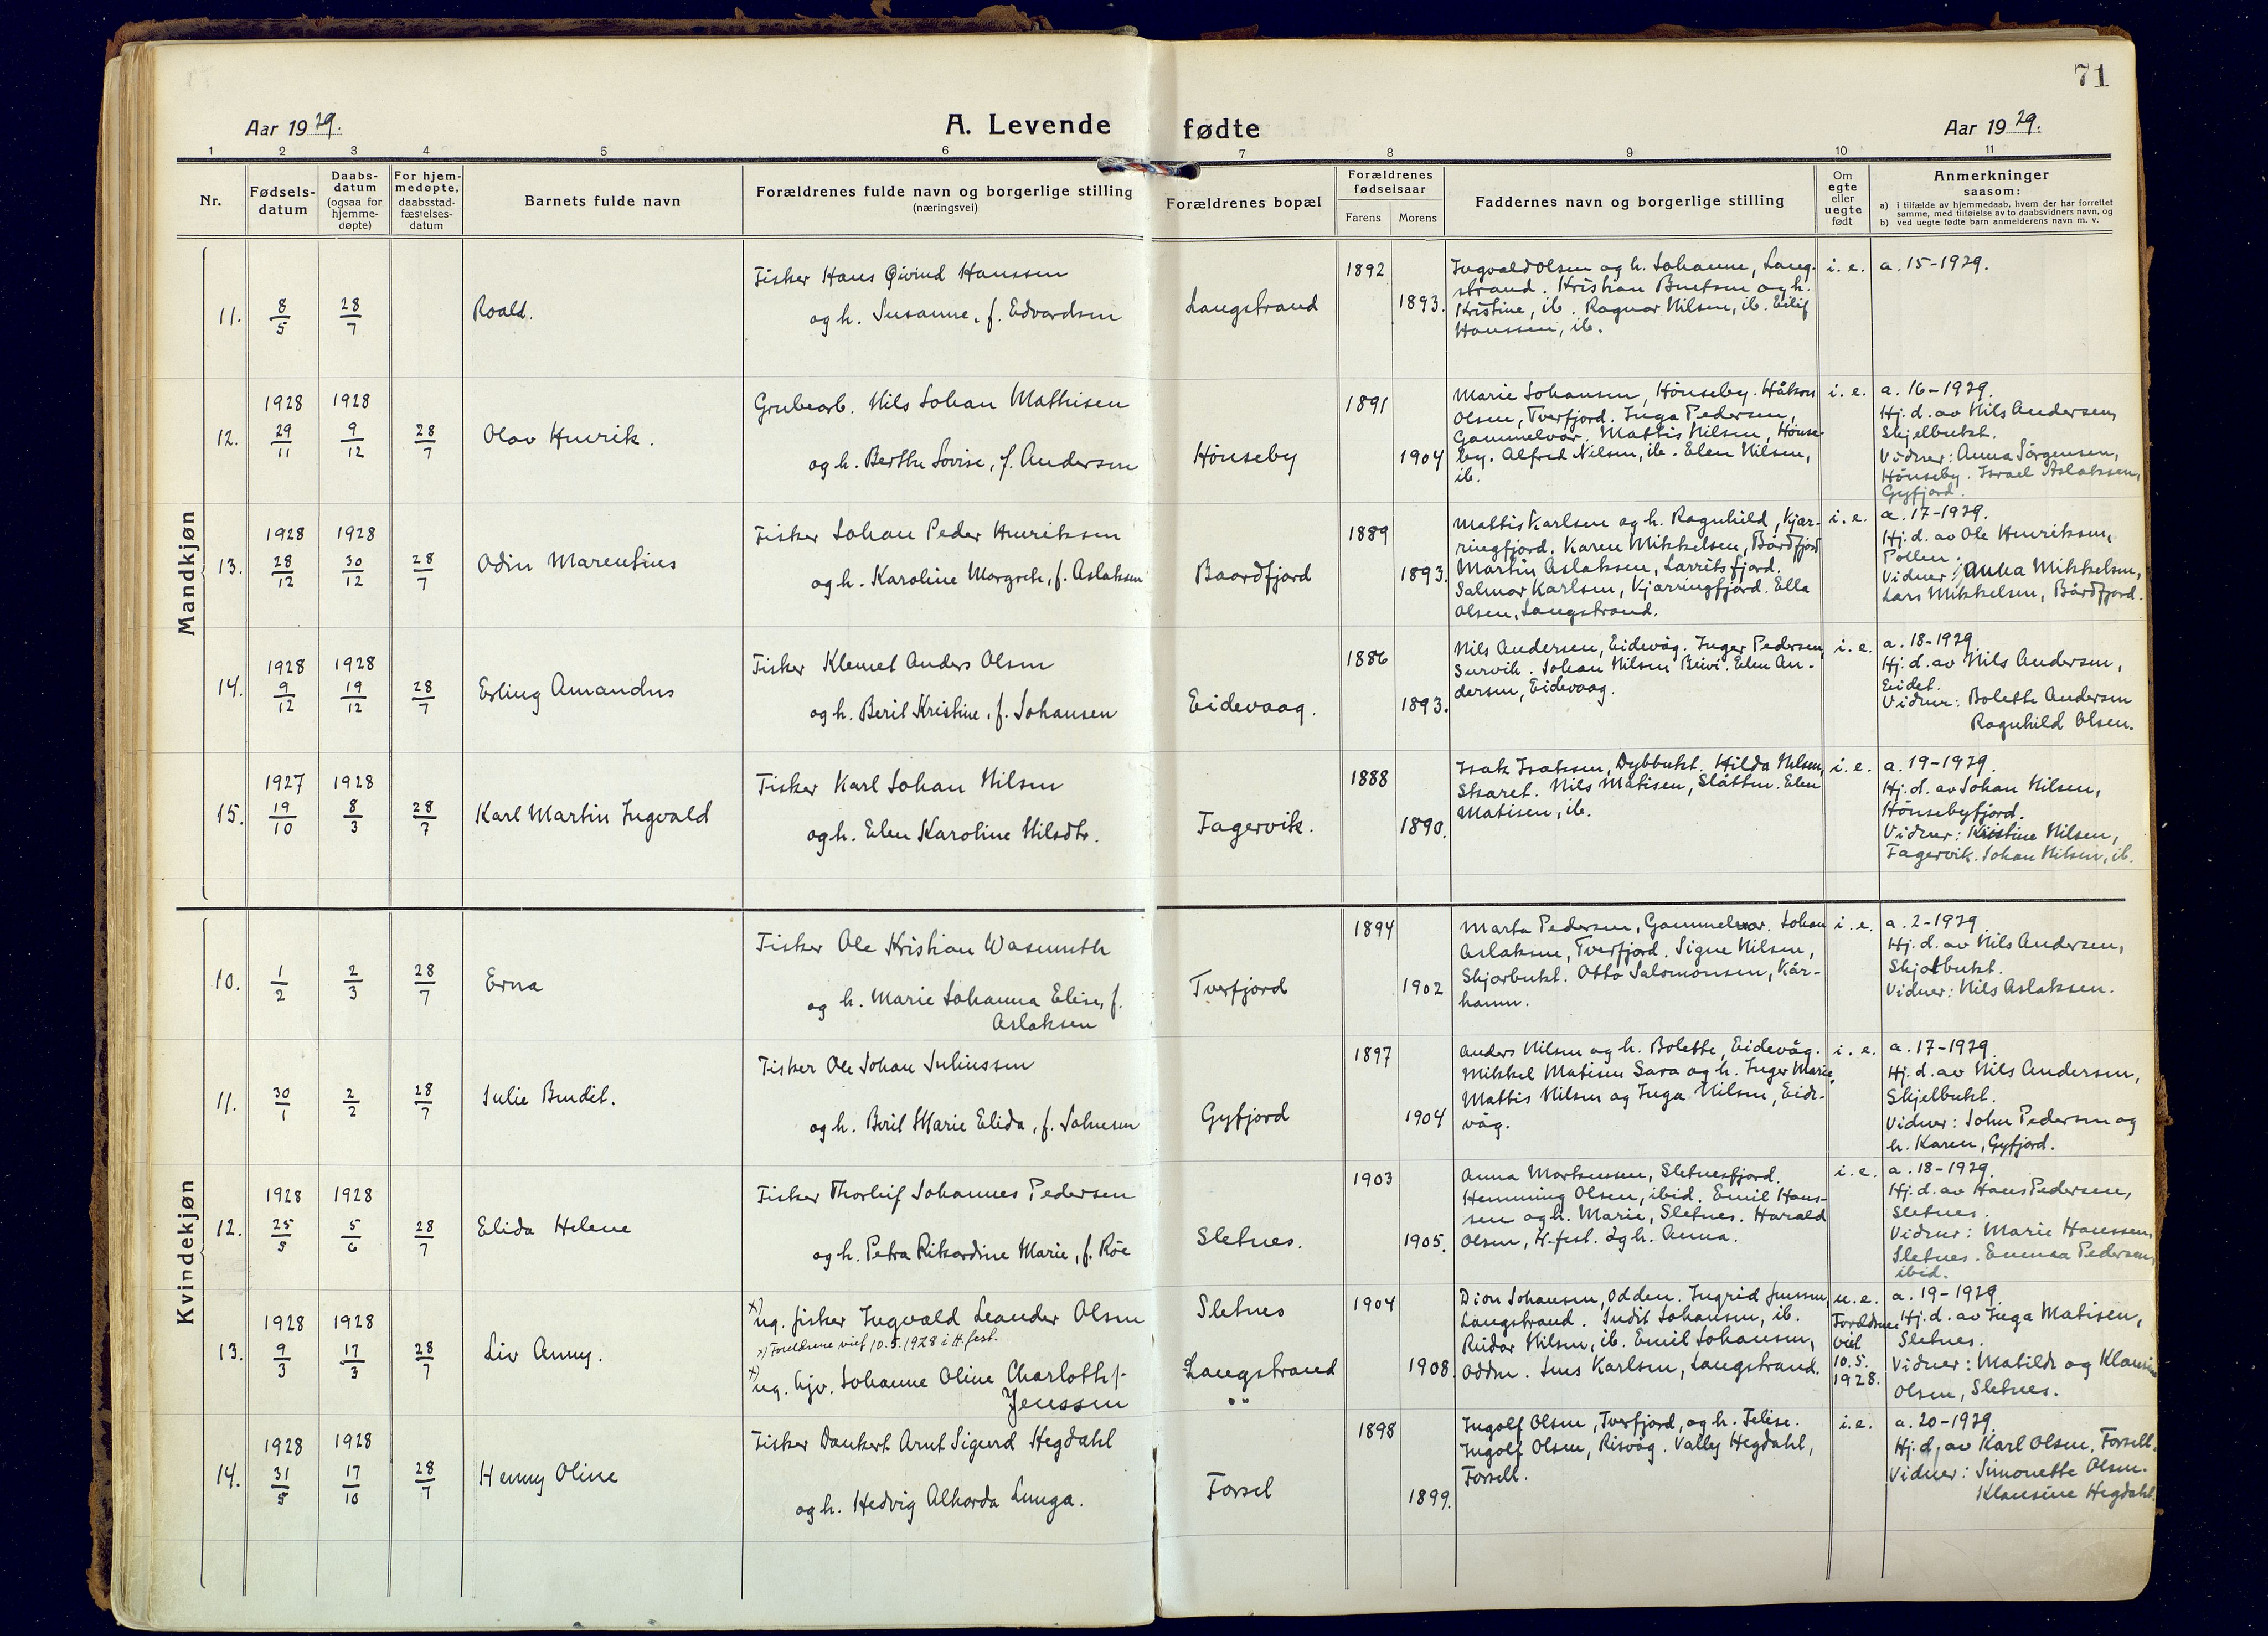 71
Aar 1929.
A. Levende fødte
Aar 1929.
1 2 3 4 5 6 7 8 9 10 11
Nr.
Fødsels-
datum
Daabs-
datum
(ogsaa for
hjemme-
døpte)
For hjem-
medøpte,
daabsstad-
fæstelses-
datum
Barnets fulde navn
Forældrenes fulde navn og borgerlige stilling
(næringsvei)
Forældrenes bopæl
Forældrenes
fødselsaar
Farens Morens
Faddernes navn og borgerlige stilling
Om
egte
eller
uegte
født
Anmerkninger
saasom:
a) i tilfælde av hjemmedaab, hvem der har forrettet
samme, med tilføielse av to daabsvidners navn, og
b) ved uegte fødte barn anmelderens navn m. v.
Mandkjøn
11. 8/5 28/7
Roald.
Fisker Hans Øivind Hanssen
og h. Susanne, f. Edvardsen
Langstrand
1892
1893.
Ingvald Olsen og h. Johanne, Lang-
strand. Kristian Berntsen og h.
Kristine, ib. Ragnar Nilsen, ib. Eilif
Hanssen, ib.
i. e.
a. 15-1929.
12. 1928 29/11 1928 9/12 28/7
Olav Henrik.
Grubearb. Nils Johan Mathisen
og h. Berthe Lovise, f. Andersen
Hønseby
1891
1904
Marie Johansen, Hønseby. Håkon
Olsen, Tverfjord. Inga Pedersen,
Gammelvær. Mattis Nilsen, Hønse-
by. Alfred Nilsen, ib. Elen Nilsen,
ib.
i. e.
a. 16-1929.
Hj. d. av Nils Andersen,
Skjelbukt.
Vidner: Anna Jørgensen,
Hønseby. Israel Aslaksen,
Gyfjord.
13. 1928 28/12 1928 30/12 28/7
Odin Marentius
Fisker Johan Peder Henriksen
og h. Karoline Margrete, f. Aslaksen
Baardfjord
1889
1893.
Mattis Karlsen og h. Ragnhild, Kjær-
ringfjord. Karen Mikkelsen, Bårdfjord
Martin Aslaksen, Larritsfjord.
Salmar Karlsen, Kjærringfjord. Ella
Olsen, Langstrand.
i. e.
a. 17-1929.
Hj. d. av Ole Henriksen,
Pollen.
Vidner: Anna Mikkelsen,
Lars Mikkelsen, Bårdfjord.
14. 1928 9/12 1928 19/12 28/7
Erling Amandus
Fisker Klemet Anders Olsen
og h. Berit Kristine, f. Johansen
Eidevaag.
1886
1893.
Nils Andersen, Eidevåg. Inger Pedersen,
Survik. Johan Nilsen Beivi. Elen An-
dersen, Eidevaag.
i. e.
a. 18-1929
Hj. d. av Nils Andersen,
Eidet.
Vidner: Bolette Andersen
Ragnhild Olsen.
15. 1927 19/10 1928 8/3 28/7
Karl Martin Ingvald
Fisker Karl Johan Nilsen
og h. Elen Karoline Nilsdtr.
Fagervik.
1888
1890.
Isak Isaksen, Dybbukt. Hilda Nilsen,
Skaret. Nils Matisen, Slåtten. Elen
Matisen, ib.
i. e.
a. 19-1929.
Hj. d. av Johan Nilsen,
Hønsebyfjord.
Vidner: Kristine Nilsen,
Fagervik. Johan Nilsen, ib.
Kvindekjøn
10. 1/2 2/3 28/7
Erna
Fisker Ole Kristian Wasmuth
og h. Marie Johanna Elise, f.
Aslaksen
Tverfjord
1894
1902
Marta Pedersen, Gammelvær. Johan
Aslaksen, Tverfjord. Signe Nilsen,
Skjærbukt. Otto Salomonsen, Kår-
hamn.
i. e.
a. 2-1929.
Hj. d. av Nils Andersen,
Skjelbukt.
Vidner: Nils Aslaksen.
11. 30/1 2/2 28/7
Julie Bendit.
Fisker Ole Johan Juliussen
og h. Berit Marie Elida, f. Johnsen
Gyfjord
1897
1904
Anders Nilsen og h. Bolette, Eidevåg.
Mikkel Matisen Sara og h. Inger Marie,
Mattis Nilsen og Inga Nilsen, Eide-
våg.
i. e.
a. 17-1929.
Hj. d. av Nils Andersen,
Skjelbukt.
Vidner: John Pedersen og
h. Karen, Gyfjord.
12. 1928 25/5 1928 5/6 28/7
Elida Helene
Fisker Thorleif Johannes Pedersen
og h. Petra Rikardine Marie, f. Röe
Sletnes.
1903
1905.
Anna Markussen, Sletnesfjord.
Hemming Olsen, ibid. Emil Hans-
sen og h. Marie, Sletnes. Harald
Olsen, H.fest. og h. Anna.
i. e.
a. 18-1929.
Hj. d. av Hans Pedersen,
Sletnes.
Vidner: Marie Hanssen,
Sletnes. Emma Pedersen,
ibid.
13. 1928 9/3 1928 17/3 28/7
Liv Anny.
x) Ug. fisker Ingvald Leander Olsen
x) Foreldrene viet 10.5.1928 i H.fest.
x) ug. hjv. Johanne Oline Charlotte f.
Jenssen
Sletnes
Langstrand
1904
1908.
Dion Johansen, Odden. Ingrid Jenssen,
Langstrand. Indit Johansen, ib.
Reidar Nilsen, ib. Emil Johansen,
Odden. Jens Karlsen, Langstrand.
u. e.
Foreldrene
viet
10.5.
1928.
a. 19-1929.
Hj. d. av Inga Matisen,
Sletnes.
Vidner: Matilde og Klausine
Olsen, Sletnes.
14. 1928 31/5 1928 17/10 28/7
Henny Oline
Fisker Dankert Arnt Sigurd Hegdahl
og h. Hedvig Alharda Lunga.
Forsel
1898
1899.
Ingolf Olsen, Tverfjord, og h. Felise.
Ingolf Olsen, Risvåg. Vally Hegdahl,
Forsell.
i. e.
a. 20-1929.
Hj. d. av Karl Olsen, Forsell.
Vidner: Simonette Olsen.
Klausine Hegdahl.